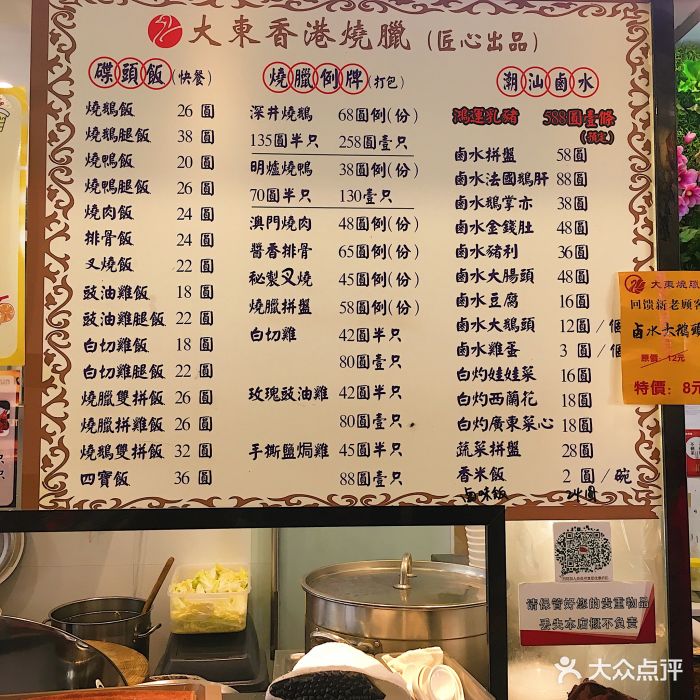 大東香港燒臘（匠心出品）
碟頭飯（快餐）
燒鵝飯 26 圓
燒鵝腿飯 38 圓
燒鴨飯 20 圓
燒鴨腿飯 26 圓
燒肉飯 24 圓
排骨飯 24 圓
叉燒飯 22 圓
豉油雞飯 18 圓
豉油雞腿飯 22 圓
白切雞飯 18 圓
白切雞腿飯 22 圓
燒臘雙拼飯 26 圓
燒臘拼雞飯 26 圓
燒鵝雙拼飯 32 圓
四寶飯 36 圓
燒臘例牌（打包）
深井燒鵝 68圓例(份)
135圓半只 258圓壹只
明爐燒鴨 38圓例(份)
70圓半只 130壹只
澳門燒肉 48圓例(份)
醬香排骨 65圓例(份)
秘製叉燒 45圓例(份)
燒臘拼盤 58圓例(份)
白切雞 42圓半只
80圓壹只
玫瑰豉油雞 42圓半只
80圓壹只
手撕鹽焗雞 45圓半只
88圓壹只
潮汕鹵水
鴻運乳豬 588圓壹條
(預定)
鹵水拼盤 58圓
鹵水法國鵝肝 88圓
鹵水鵝掌亦 38圓
鹵水金錢肚 48圓
鹵水豬利 36圓
鹵水大腸頭 48圓
鹵水豆腐 16圓
鹵水大鵝頭 12圓/個
鹵水雞蛋 3 圓/個
白灼娃娃菜 16圓
白灼西蘭花 18圓
白灼廣東菜心 18圓
蔬菜拼盤 28圓
香米飯 2 圓/碗
鹵味飯 24圓
大東燒臘
回馈新老顾客
鹵水大鵝頭
原價：12元
特價：8元
请保管好您的贵重物品
丢失本店概不负责
大众点评